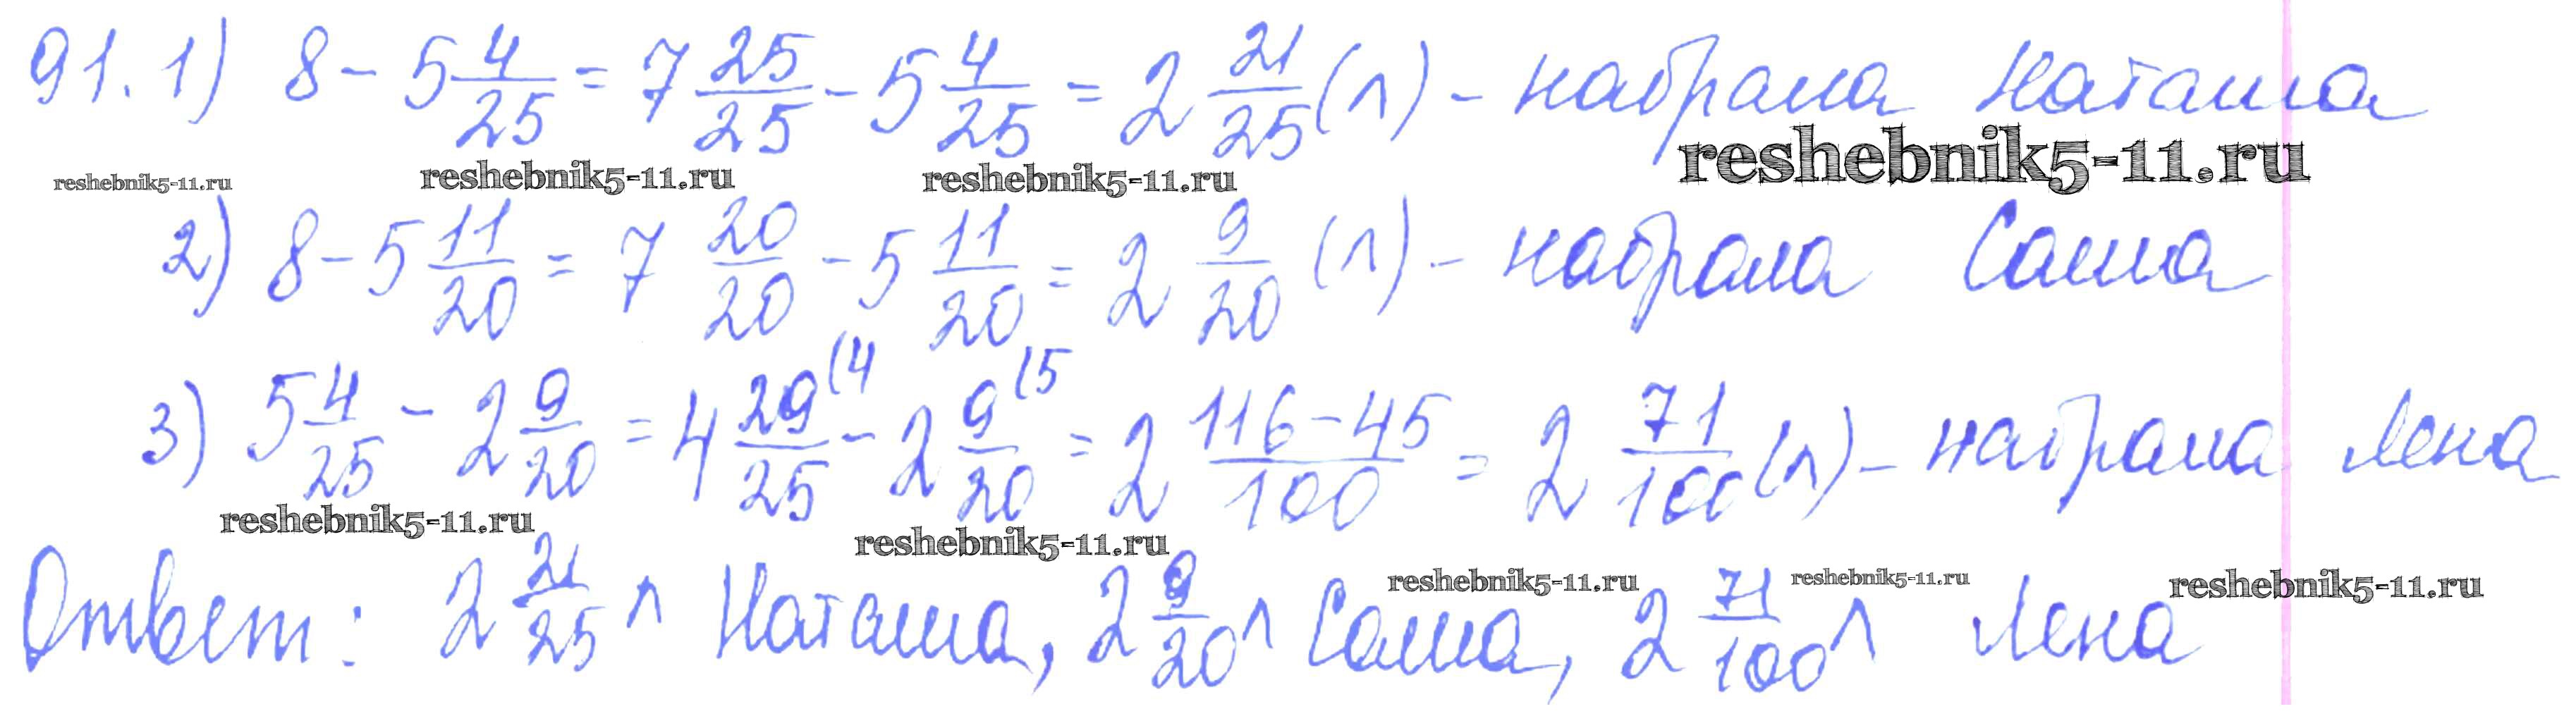 91. 1) 8 - 5 4/25 = 7 25/25 - 5 4/25 = 2 21/25 (л) - набрала Наташа
reshebnik5-11.ru reshebnik5-11.ru reshebnik5-11.ru reshebnik5-11.ru
2) 8 - 5 11/20 = 7 20/20 - 5 11/20 = 2 9/20 (л) - набрала Саша
3) 5 4/25 - 2 9/20 = 4 29/25 (4 - 2 9/20 (5 = 2 116-45/100 = 2 71/100 (л) - набрала Лена
reshebnik5-11.ru reshebnik5-11.ru
Ответ: 2 21/25 л Наташа, 2 9/20 л Саша, 2 71/100 л Лена
reshebnik5-11.ru reshebnik5-11.ru reshebnik5-11.ru